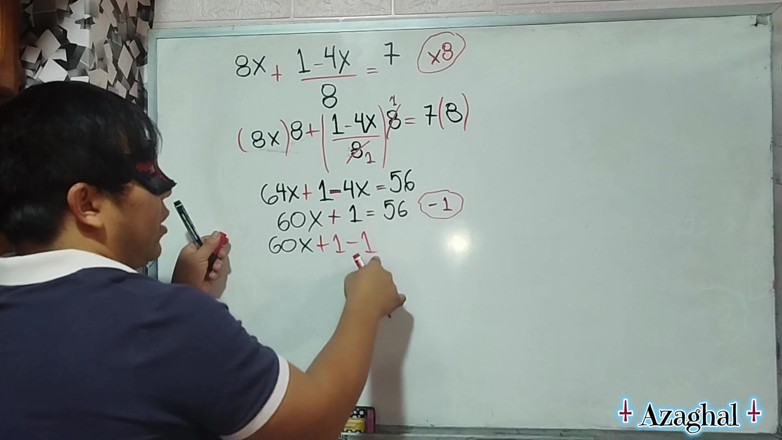 8x + (1-4x)/8 = 7 (x8)
(8x)8 + ((1-4x)/8 1) 8 1 = 7(8)
64x+1-4x=56
60x+1=56 (-1)
60x+1-1
Azaghal